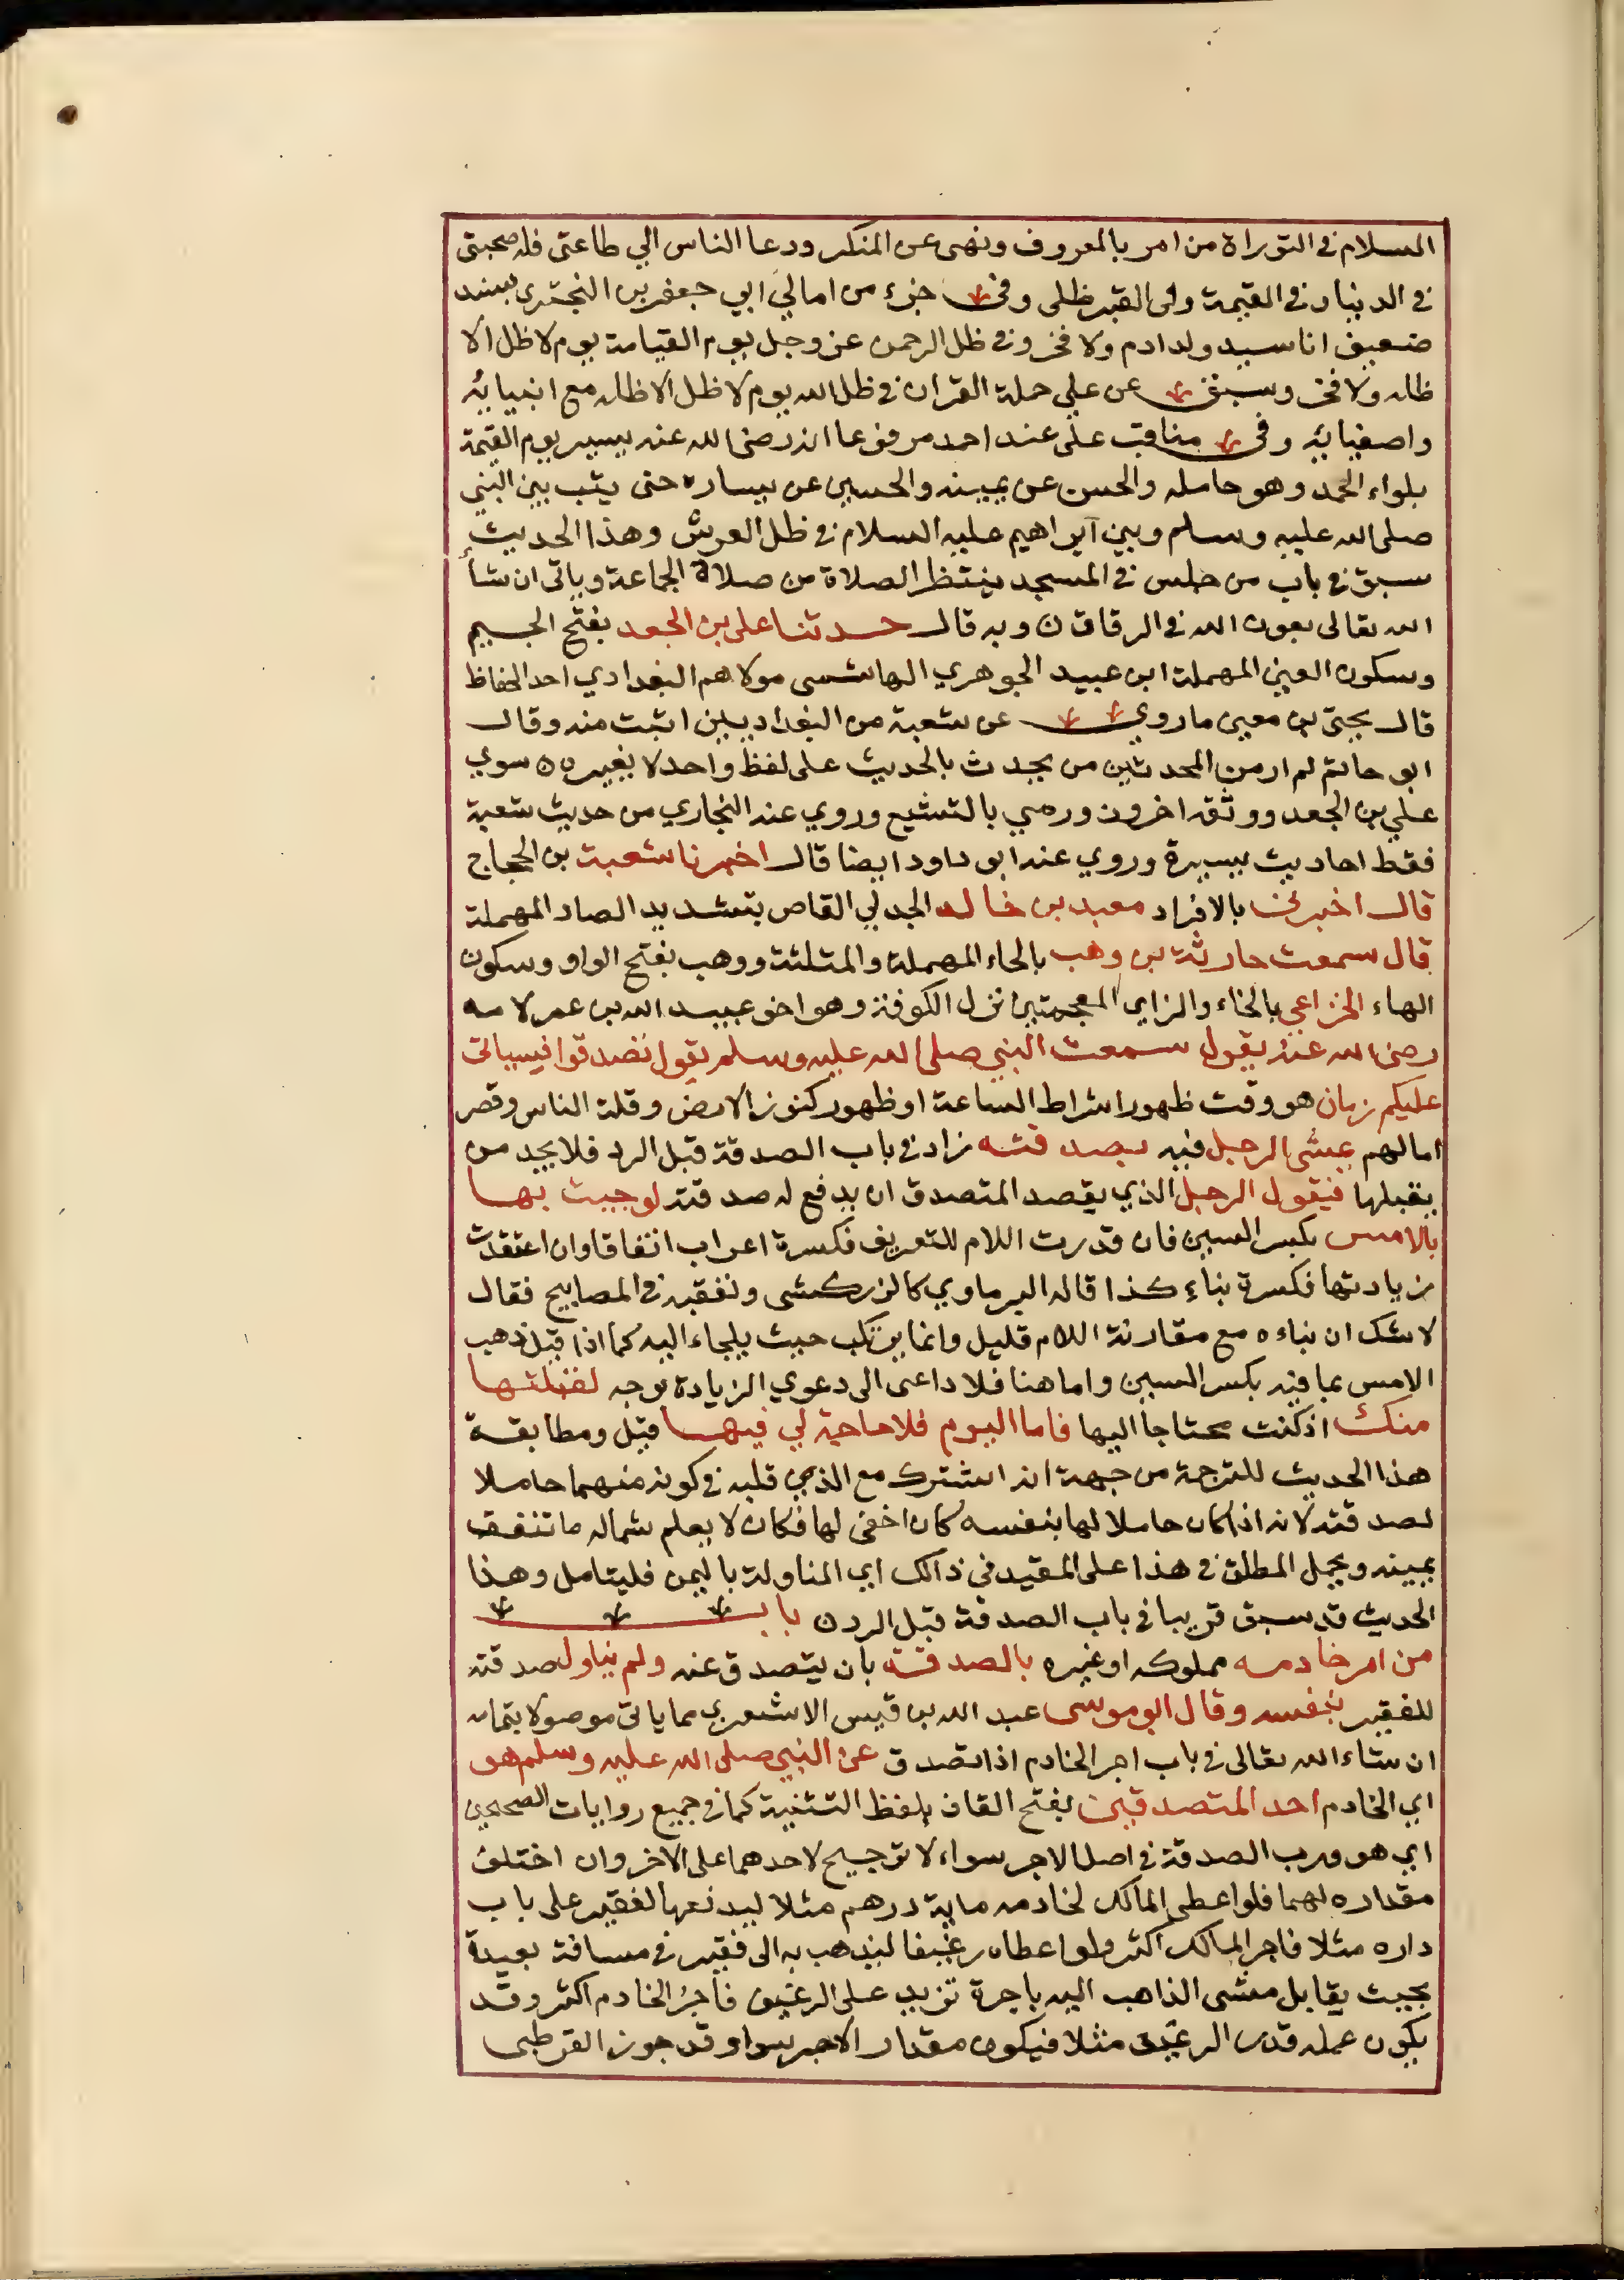 السلام في التوراة من امر بالمعروف ونهى عن المنكر ودعا الناس الي طاعتي فله صحبتي
في الدنيا وفي القيمة وفي القبر ظلي وفي جزء من امالي ابي جعفر بن البختري بسند
ضعيف انا سيد ولد ادم ولا فخر وفي ظل الرحمن عز وجل يوم القيامة يوم لا ظل الا
ظله ولا فخر وسبق عن علي حملة القران في ظل الله يوم لا ظل الا ظله مع انبيايه
واصفيايه وفي مناقب على عند احمد مرفوعا انه رضى الله عنه يسير يوم القيمة
بلواء الحمد وهو حامله والحسن عن يمينه والحسين عن يساره حتى يثب بين النبي
صلى الله عليه وسلم وبين ابراهيم عليه السلام في ظل العرش وهذا الحديث
سبق في باب من جلس في المسجد ينتظر الصلاة من صلاة الجماعة وياتى ان شأ
الله تعالى بعون الله في الرقاق ن وبه قال حدثنا على بن الجعد بفتح الجيم
وسكون العين المهملة ابن عبيد الجوهري الهاشمى مولاهم البغدادي احد الحفاظ
قال يحيى بن معين ما روي عن شعبة من البغداديين اثبت منه وقال
ابو حاتم لم ار من المحدثين من يحدث بالحديث على لفظ واحد لا يغيره ن سوي
علي بن الجعد ووثقه اخرون ورمي بالتشيع وروي عنه البخاري من حديث شعبة
فقط احاديث يسيرة وروي عنه ابو داود ايضا قال اخبرنا شعبة بن الحجاج
قال اخبرني بالافراد معبد بن خالد الجدلي القاص بتشديد الصاد المهملة
قال سمعت حارثة بن وهب بالحاء المهملة والمثلثة ووهب بفتح الواو وسكون
الهاء الخزاعي بالخاء والزاي المعجمتين نزل الكوفة وهو اخو عبيد الله بن عمر لامه
رضى الله عنه يقول سمعت النبي صلى الله عليه وسلم يقول تصدقوا فسياتى
عليكم زمان هو وقت ظهور اشراط الساعة او ظهور كنوز الارض وقلة الناس وقصر
امالهم يمشى الرجل فيه بصدقته زاد في باب الصدقة قبل الرد فلا يجد من
يقبلها فيقول الرجل الذي يقصد المتصدق ان يدفع له صدقته لو جيت بها
بالامس بكسر السين فان قدرت اللام للتعريف فكسرة اعراب اتفاقا وان اعتقدت
زيادتها فكسرة بناء كذا قاله البرماوي كالزركشى وتعقبه في المصابيح فقال
لا شك ان بناءه مع مقارنة اللام قليل وانما يرتكب حيث يلجاء اليه كما اذا قيل ذهب
الامس بما فيه بكسر السين واما هنا فلا داعى الى دعوي الزيادة بوجه لقبلتها
منك اذ كنت محتاجا اليها فاما اليوم فلا حاجة لي فيها قيل ومطابقة
هذا الحديث للترجمة من جهة انه اشترك مع الذي قبله في كونه منهما حاملا
لصدقته لانه اذا كان حاملا لها بنفسه كان اخفى لها فكان لا يعلم شماله ما تنفق
يمينه ويحمل المطلق في هذا على المقيد في ذالك اي المناولة باليمن فليتامل وهذا
الحديث قد سبق قريبا في باب الصدقة قبل الرد ن باب
من امر خادمه مملوكه او غيره بالصدقة بان يتصدق عنه ولم يناول صدقته
للفقير بنفسه وقال ابو موسى عبد الله بن قيس الاشعري مما ياتى موصولا بتمامه
ان شاء الله تعالى في باب اجر الخادم اذا تصدق عن النبي صلى الله عليه وسلم هو
اي الخادم احد المتصدقين بفتح القاف بلفظ التثنية كما في جميع روايات الصحيحين
اي هو ورب الصدقة في اصل الاجر سواء لا ترجيح لاحدهما على الاخر وان اختلف
مقداره لهما فلو اعطى المالك لخادمه ماية درهم مثلا ليدفعها لفقير على باب
داره مثلا فاجر المالك اكثر ولو اعطاه رغيفا ليذهب به الى فقير في مسافة بعيدة
بحيث يقابل مشى الذاهب اليه باجرة تزيد على الرغيف فاجر الخادم اكثر وقد
يكون عمله قدر الرغيف مثلا فيكون مقدار الاجر سواء وقد جوز القرطبى